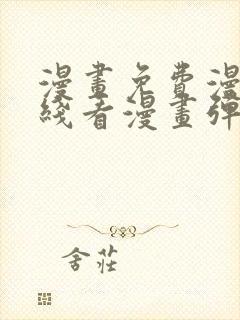 漫畫免費漫
綫看漫畫彈
舍莊